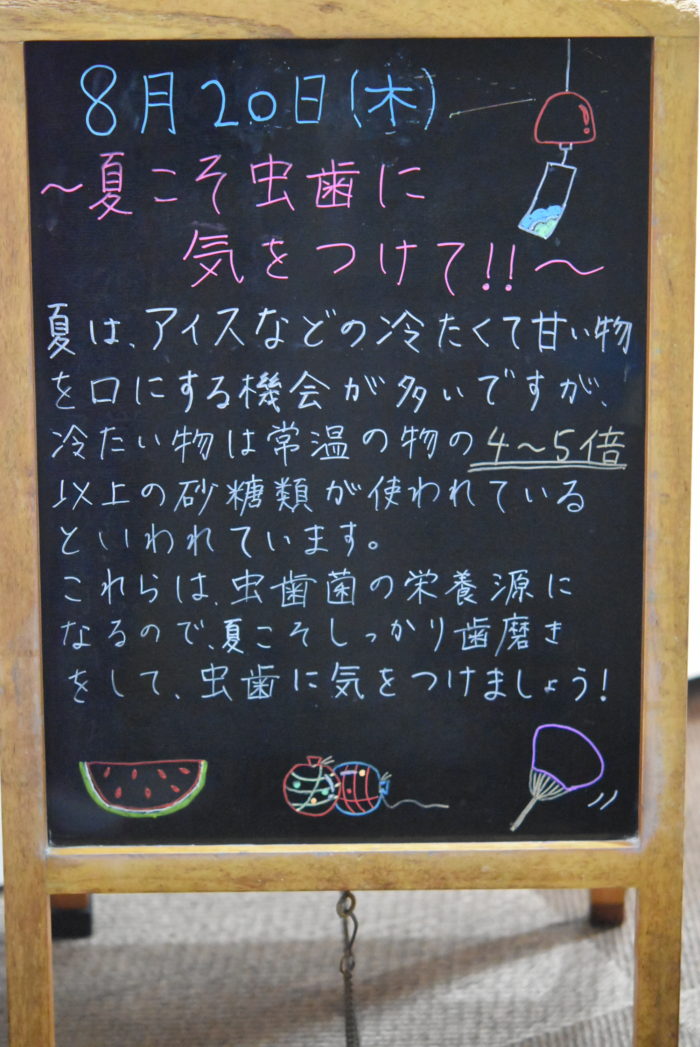 8月20日(木)
～夏こそ虫歯に
気をつけて!!～
夏は、アイスなどの冷たくて甘い物
を口にする機会が多いですが、
冷たい物は常温の物の4～5倍
以上の砂糖類が使われている
といわれています。
これらは、虫歯菌の栄養源に
なるので、夏こそしっかり歯磨き
をして、虫歯に気をつけましょう!